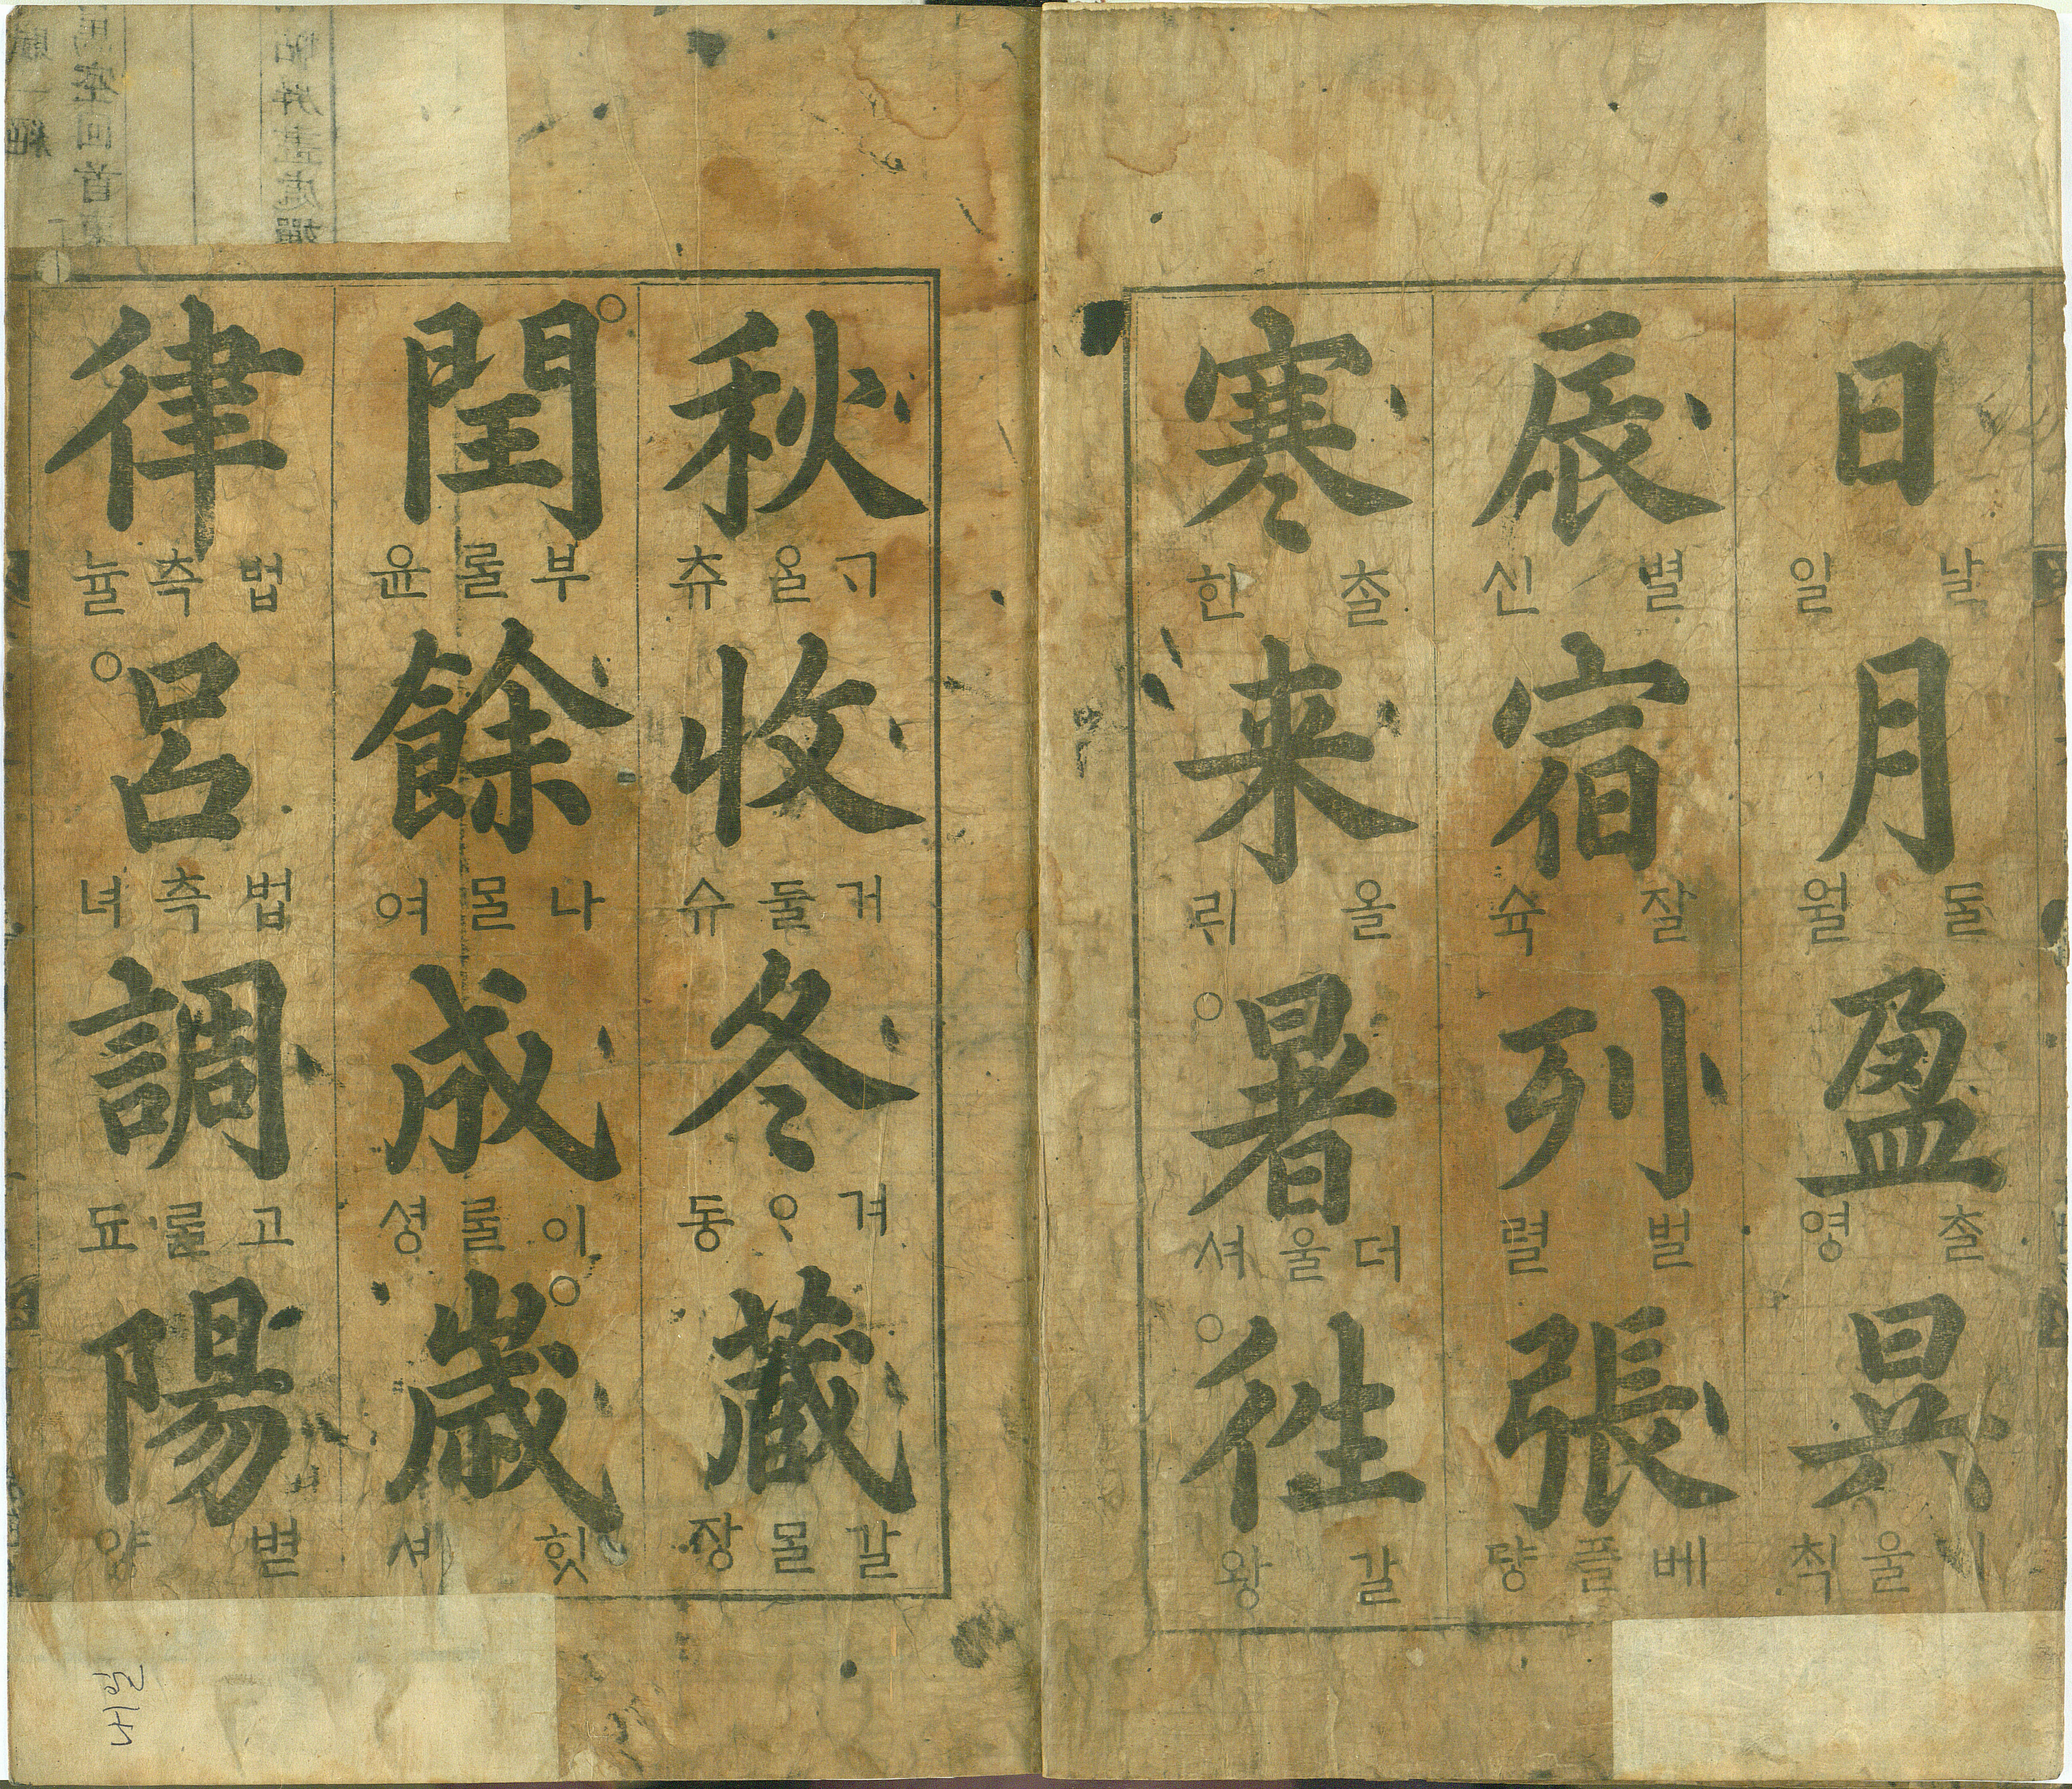 日 날 일 月 ᄃᆞᆯ 월 盈 ᄎᆞᆯ 영 昃 기울 칙
辰 별 신 宿 잘 슉 列 벌 렬 張 베플 댱
寒 ᄎᆞᆯ 한 来 올 ᄅᆡ 暑 더울 셔 徃 갈 왕
秋 ᄀᆞ을 츄 收 거둘 슈 冬 겨ᄋᆞ 동 藏 갈몰 장
閏 부룰 윤 餘 나몰 여 成 이룰 셩 歲 힛 셔
律 법측 뉼 呂 법측 녀 調 고룰 됴 陽 별 양
내일